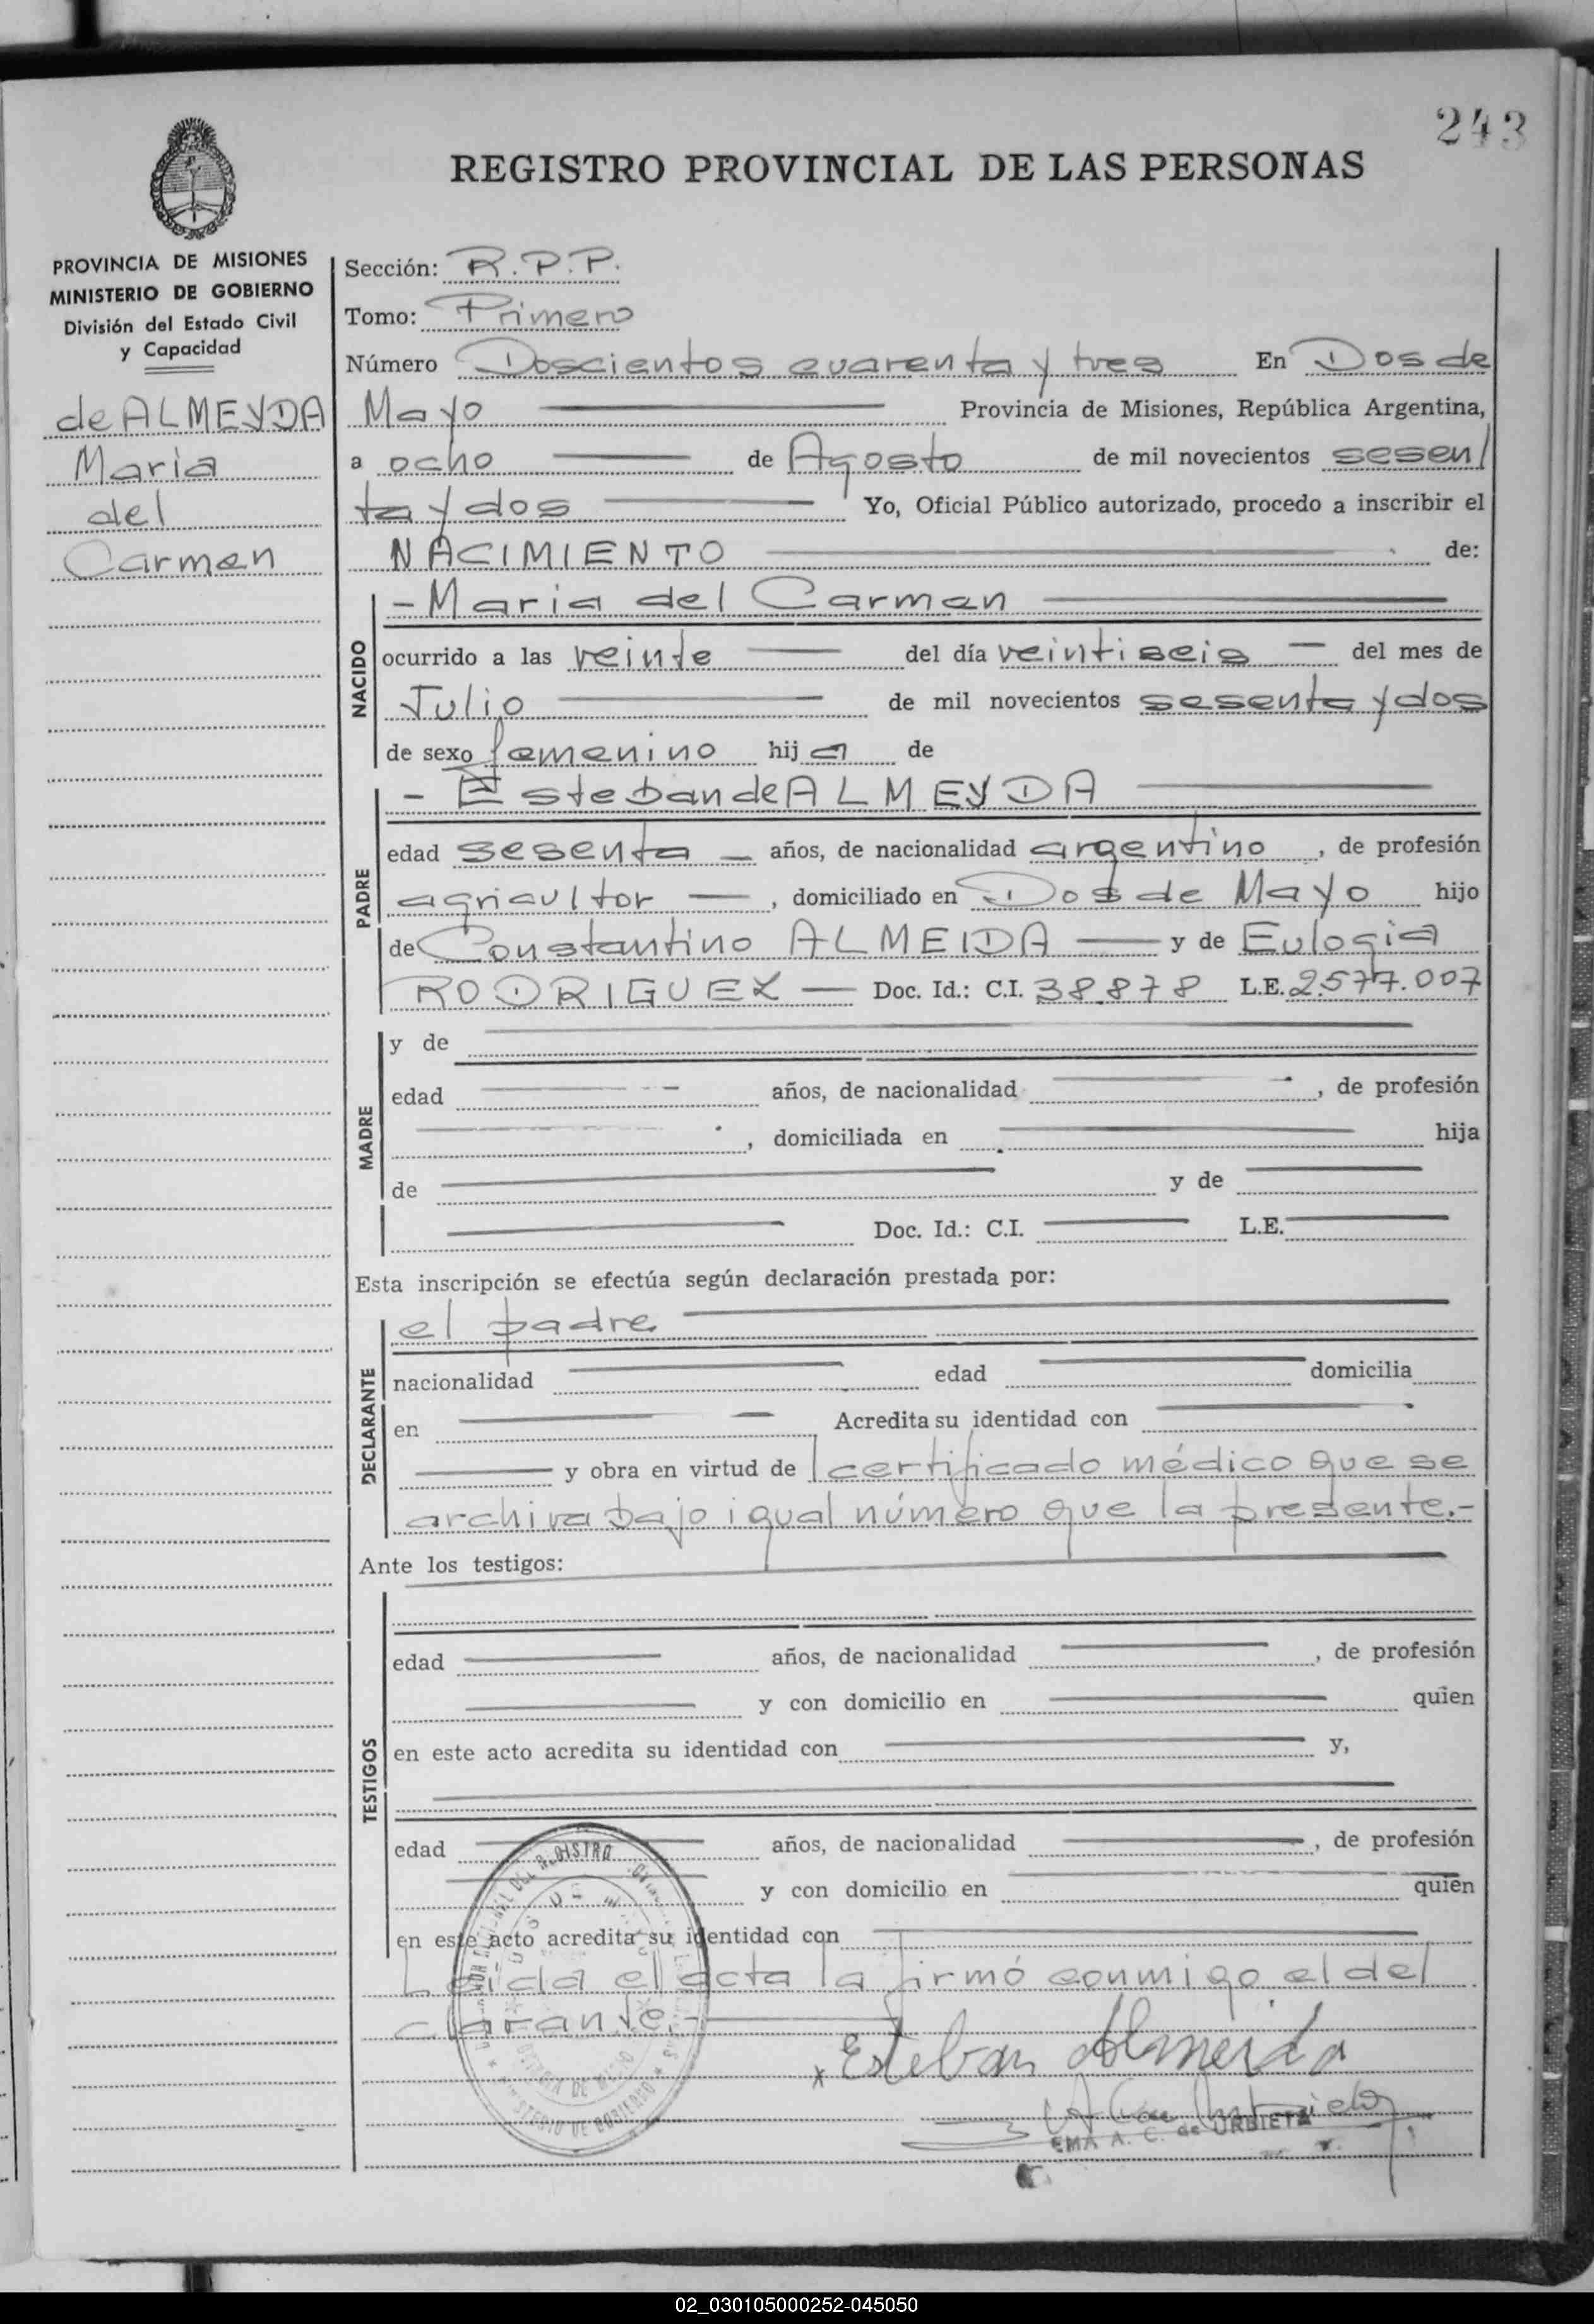 243
REGISTRO PROVINCIAL DE LAS PERSONAS
PROVINCIA DE MISIONES
MINISTERIO DE GOBIERNO
División del Estado Civil
y Capacidad
de ALMEYDA
Maria
del
Carmen
Sección: R.P.P.
Tomo: Primero
Número Doscientos cuarenta y tres En Dos de
Mayo Provincia de Misiones, República Argentina,
a ocho de Agosto de mil novecientos sesen/
ta y dos Yo, Oficial Público autorizado, procedo a inscribir el
NACIMIENTO de:
NACIDO
- Maria del Carmen
ocurrido a las veinte del día veintiseis del mes de
Julio de mil novecientos sesenta y dos
de sexo femenino hija de
PADRE
- Esteban de ALMEYDA
edad sesenta años, de nacionalidad argentino, de profesión
agricultor, domiciliado en Dos de Mayo hijo
de Constantino ALMEIDA y de Eulogia
RODRIGUEZ Doc. Id.: C.I. 38.878 L.E. 2.577.007
MADRE
y de
edad años, de nacionalidad, de profesión
, domiciliada en hija
de y de
Doc. Id.: C.I. L.E.
Esta inscripción se efectúa según declaración prestada por:
DECLARANTE
el padre
nacionalidad edad domicilia
en Acredita su identidad con
y obra en virtud de l certificado médico que se
archiva bajo igual número que la presente.-
Ante los testigos:
TESTIGOS
edad años, de nacionalidad, de profesión
y con domicilio en quien
en este acto acredita su identidad con y,
edad años, de nacionalidad, de profesión
y con domicilio en quien
en este acto acredita su identidad con
Leída el acta la firmó conmigo el decl
clarante.-
x Esteban Almeida
EMA A. C. de URBIETA
02_030105000252-045050